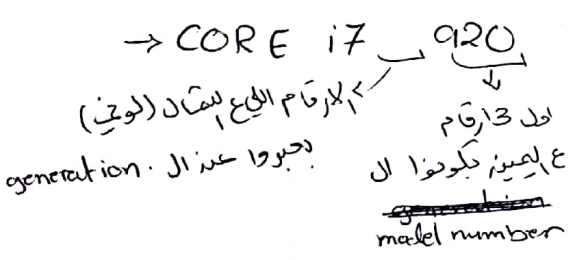 → CORE i7 920
الارقام الي ع الشمال (لو في)
بعبروا عن ال generation.
اول 3 ارقام
ع اليمين بكونوا ال
model number